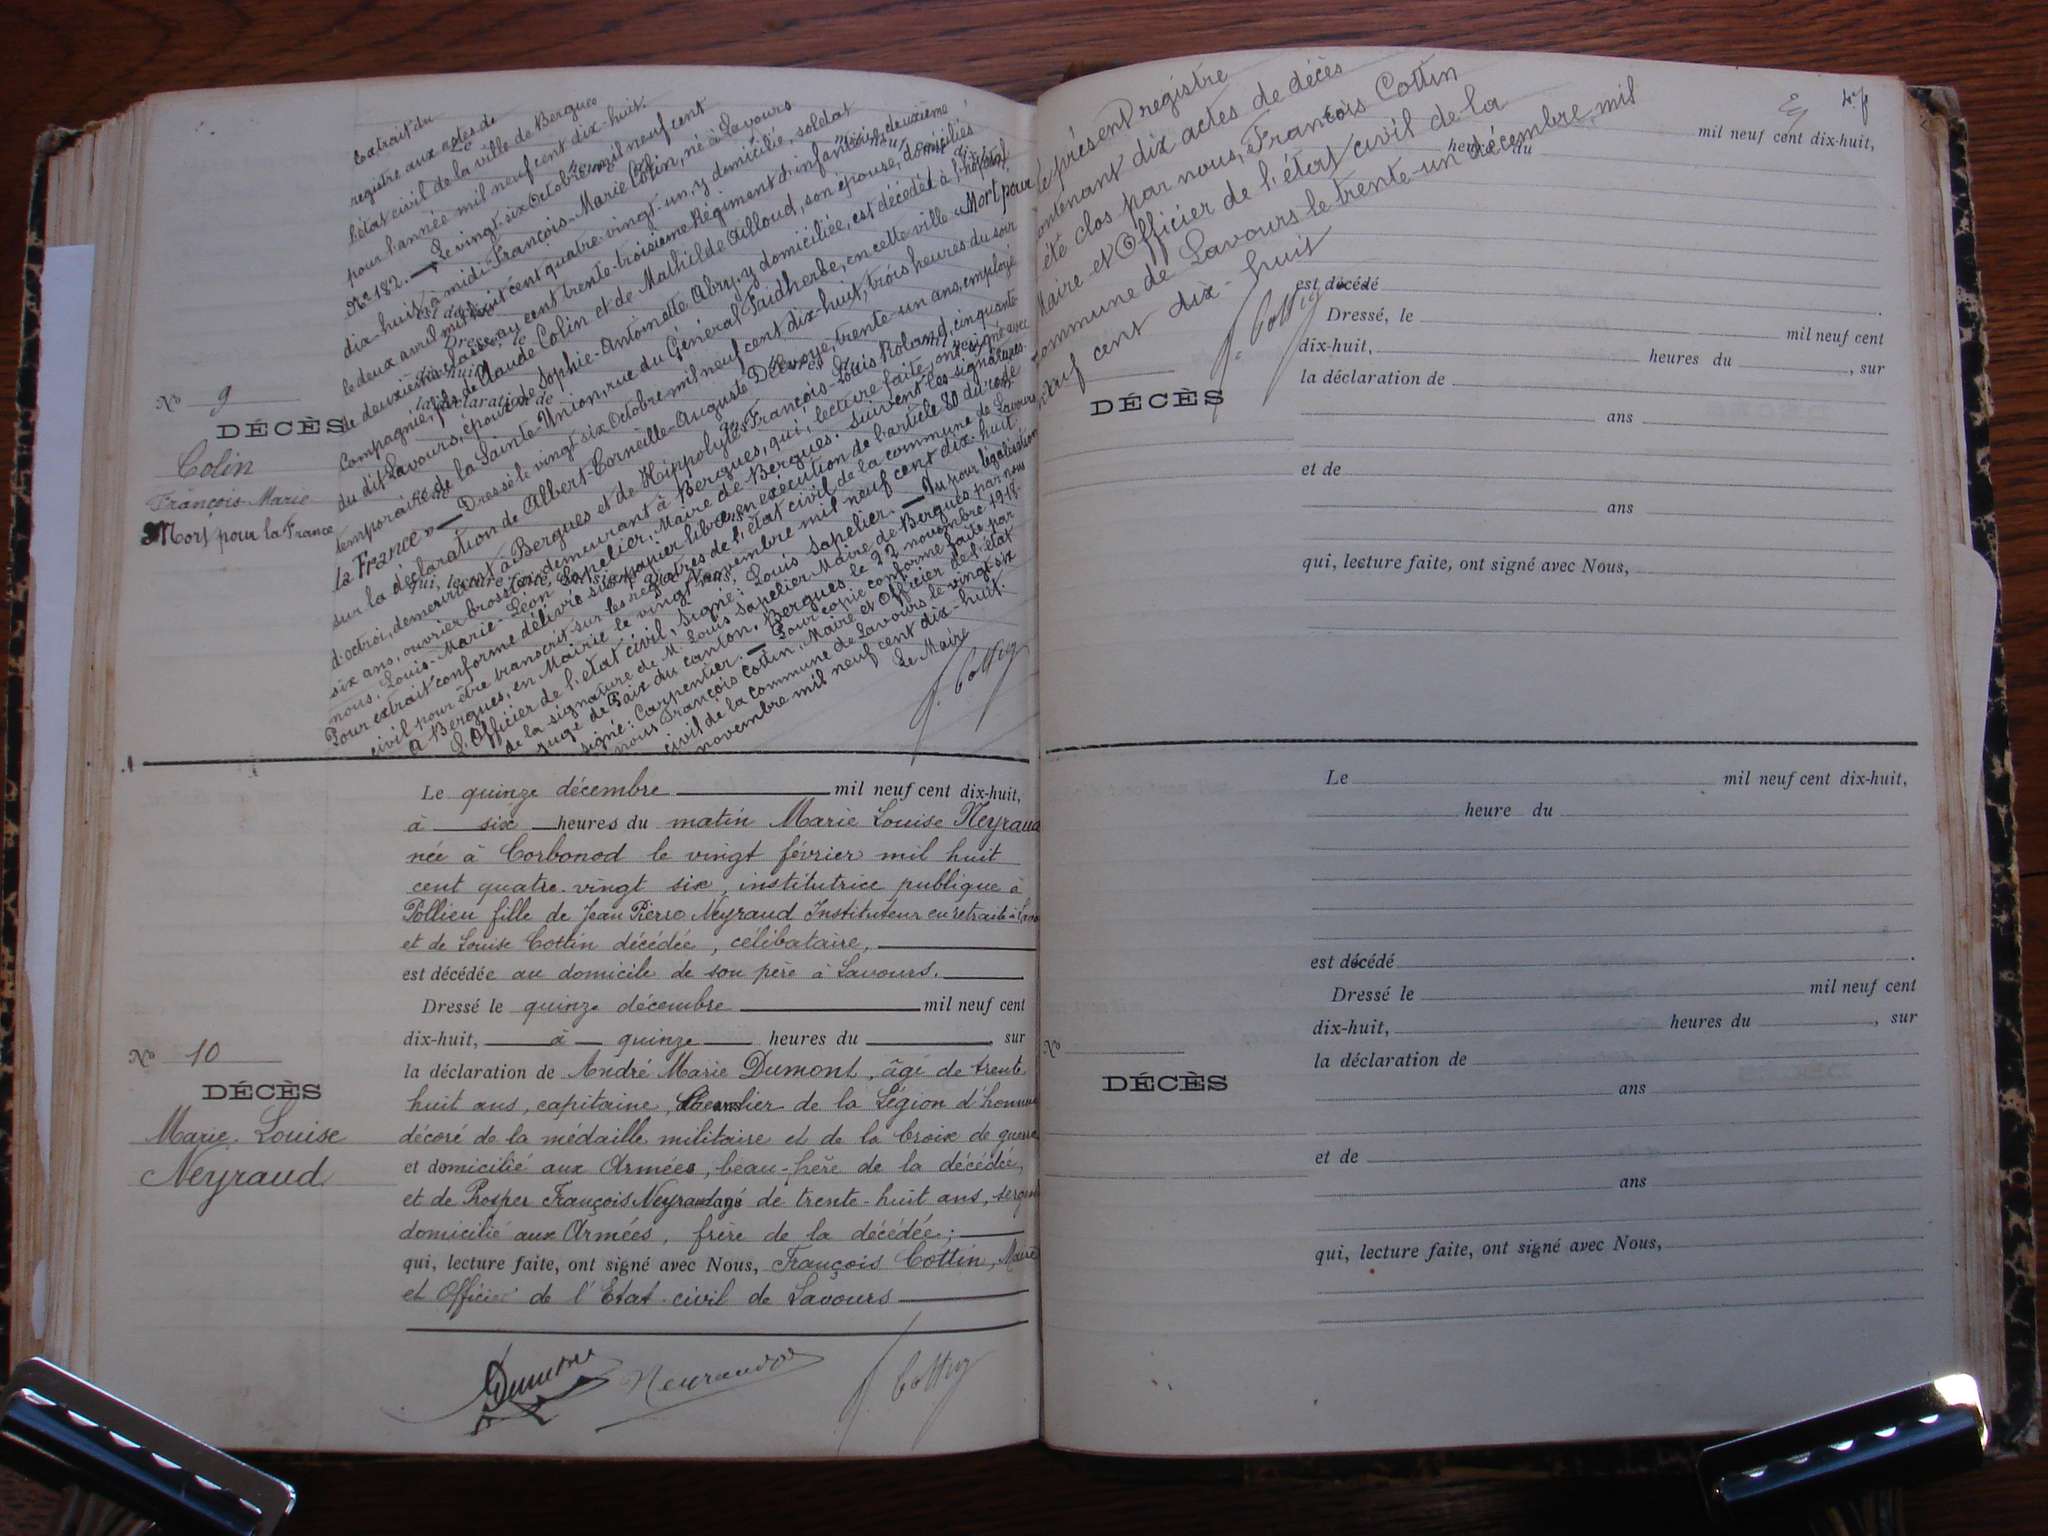 Extrait du
registre aux actes de
l'état civil de la ville de Bergues
pour l'année mil neuf cent dix-huit.
No 182. — Le vingt-six Octobre mil neuf cent
dix-huit, à midi François-Marie Colin, né à Lavours
le deux avril mil huit cent quatre-vingt-un, y domicilié, soldat
de deuxième classe au cent trente-troisième Régiment d'infanterie, deuxième
Compagnie, fils de Claude Colin et de Mathilde Ailloud, son épouse, domiciliés
du dit Lavours, époux de Sophie-Antoinette Abry, y domiciliée, est décédé à l'hôpital
temporaire de la Sainte-Union, rue du Général Faidherbe, en cette ville « Mort pour
la France » — Dressé le vingt-six Octobre mil neuf cent dix-huit, trois heures du soir
sur la déclaration de Albert-Corneille-Auguste Devoye, trente-un ans, employé
d'octroi, demeurant à Bergues et de Hippolyte-François-Louis Roland, cinquante
six ans, ouvrier brossier, demeurant à Bergues, qui, lecture faite, ont signé avec
nous, Louis-Marie-Léon Sapelier, Maire de Bergues. Suivent les signatures.
Pour extrait conforme délivré sur papier libre, en exécution de l'article 80 du code
civil pour être transcrit sur les registres de l'état civil de la commune de Lavours
A Bergues, en Mairie le vingt Novembre mil neuf cent dix-huit
L'Officier de l'état civil, signé: Louis Sapelier. — Vu pour légalisation
de la signature de M. Louis Sapelier Maire de Bergues par nous
juge de Paix du canton. Bergues le 22 novembre 1918.
signé: Carpentier. — Pour copie conforme faite par
nous François Cottin, Maire et Officier de l'état
civil de la commune de Lavours le vingt-six
novembre mil neuf cent dix-huit.
Le Maire
F. Cottin
No 9
DÉCÈS
Colin
François-Marie
Mort pour la France
Le quinze décembre mil neuf cent dix-huit,
à six heures du matin Marie Louise Neyraud
née à Corbonod le vingt février mil huit
cent quatre-vingt six, institutrice publique à
Pollieu fille de Jean Pierre Neyraud Instituteur en retraite à
et de Louise Cottin décédée, célibataire,
est décédée au domicile de son père à Lavours.
Dressé le quinze décembre mil neuf cent
dix-huit, à quinze heures du , sur
la déclaration de André Marie Dumont, âgé de trente
huit ans, capitaine, Chevalier de la Légion d'honneur
décoré de la médaille militaire et de la Croix de guerre
et domicilié aux Armées, beau-frère de la décédée,
et de Prosper François Neyraud âgé de trente-huit ans, sergent
domicilié aux Armées, frère de la décédée;
qui, lecture faite, ont signé avec Nous, François Cottin, Maire
et Officier de l'Etat civil de Lavours
No 10
DÉCÈS
Marie-Louise
Neyraud
Dumont Neyraud F. Cottin
Le présent registre
contenant dix actes de décès
été clos par nous, François Cottin
Maire et Officier de l'état civil de la
commune de Lavours le trente-un décembre mil
neuf cent dix-huit
F. Cottin
mil neuf cent dix-huit,
heure du
est décédé
Dressé, le mil neuf cent
dix-huit, heures du , sur
la déclaration de
ans
et de
ans
qui, lecture faite, ont signé avec Nous,
DÉCÈS
Le mil neuf cent dix-huit,
heure du
est décédé .
Dressé le mil neuf cent
dix-huit, heures du , sur
la déclaration de
ans
et de
ans
qui, lecture faite, ont signé avec Nous,
No
DÉCÈS